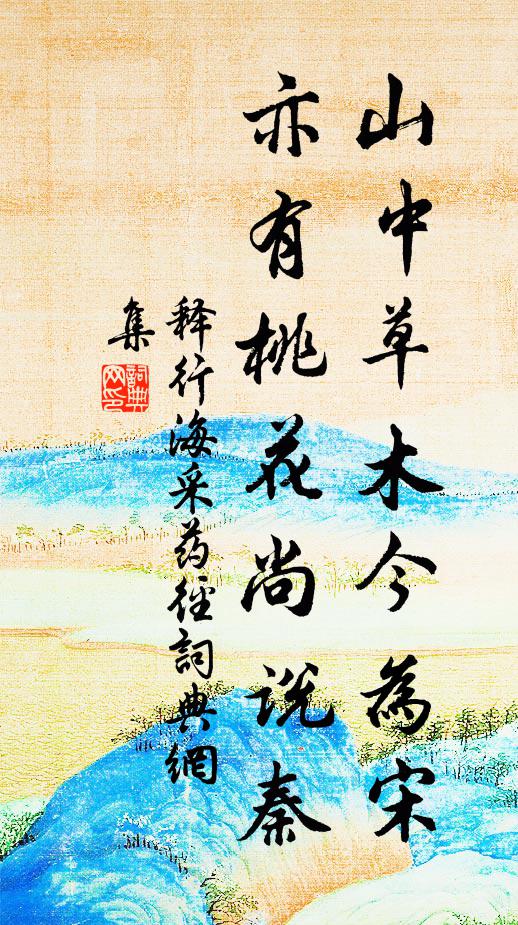 山中草木今為宋
亦有桃花尚说秦
释行海采药径詞典網
集
詞典
网印